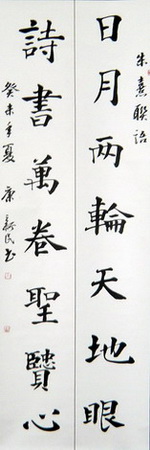 朱熹聯語
日月两輪天地眼
詩書萬卷聖賢心
癸未年夏 康